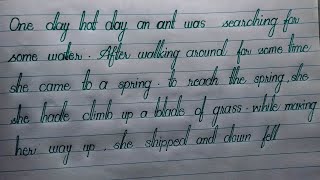 One day hot day an ant was searching for
some water. After walking around for some time
she came to a spring. to reach the spring, she
she hade climb up a blade of grass. while making
her way up, she shipped and down fell